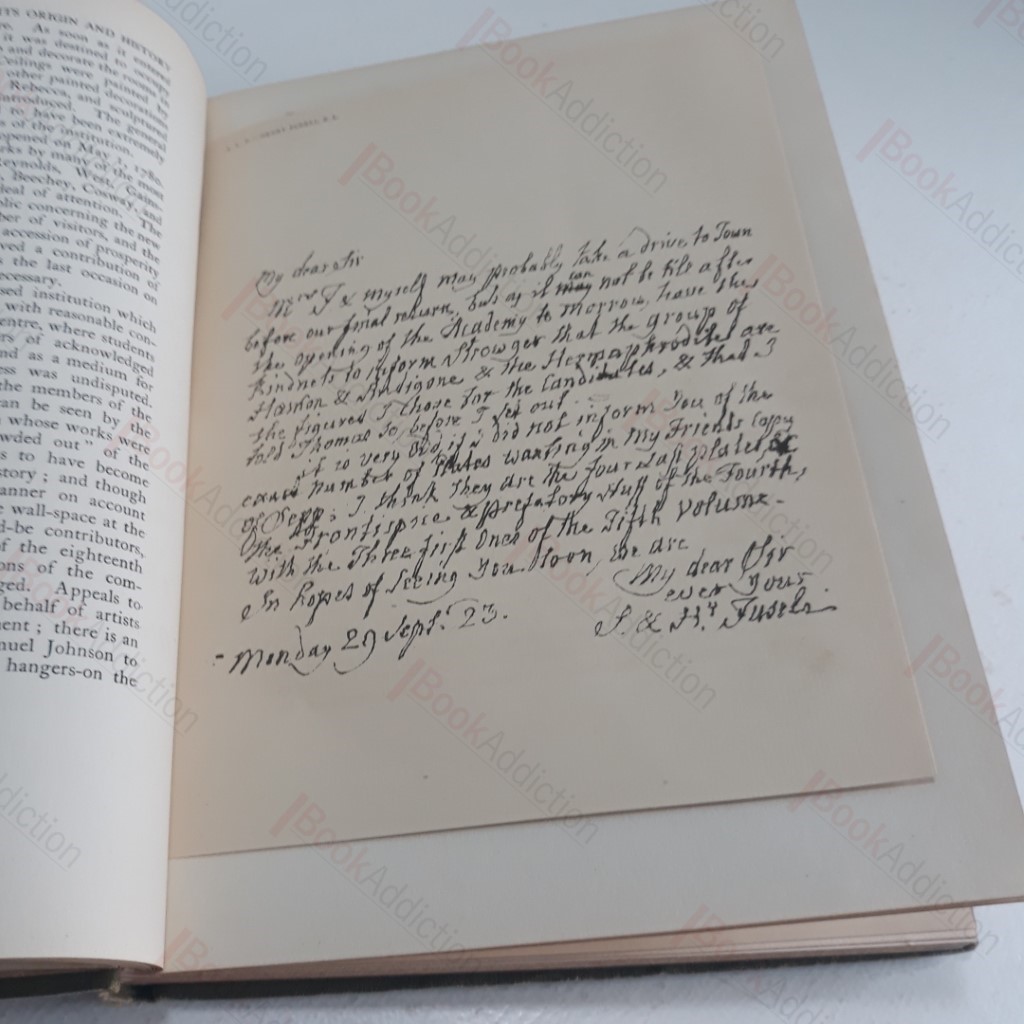 ITS ORIGIN AND HISTORY
As soon as it entered
it was destined to occupy
and decorate the rooms in
Ceilings were painted by
other painted decorations
Rebecca, and sculptured
introduced. The general
to have been extremely
s of the institution.
opened on May 1, 1780.
rks by many of the most
Reynolds, West, Gains
Beechey, Cosway, and
deal of attention. The
lic concerning the new
ber of visitors, and the
accession of prosperity
ved a contribution of
s the last occasion on
ecessary.
sed institution which
with reasonable con-
entre, where students
rs of acknowledged
nd as a medium for
ess was undisputed.
the members of the
can be seen by the
whose works were
wded out" of the
s to have become
story; and though
anner on account
e wall-space at the
d-be contributors,
of the eighteenth
ons of the com-
ged. Appeals to
behalf of artists
ment; there is an
muel Johnson to
hangers-on the
My dear Sir
Mrs F & myself may probably take a drive to Town
before our final return, but as it can may not be till after
the opening of the Academy to Morrow, have the
kindness to inform Strowger that the Group of
Haemon & Andigone & the Hermaphrodite are
the figures I chose for the Candidates, & that I
told Thomas so before I set out.
it is very odd if I did not inform You of the
exact number of plates wanting in My Friends Copy
of Sepp: I think They are the four last plates, &
the Frontispice & prefatory Stuff of the Fourth,
with the Three first Ones of the Fifth volume-
In hopes of Seeing You Soon, we are
My dear Sir
ever Yours
S. & Hy. Fuseli
Monday 29 Sept. 23.
BookAddiction